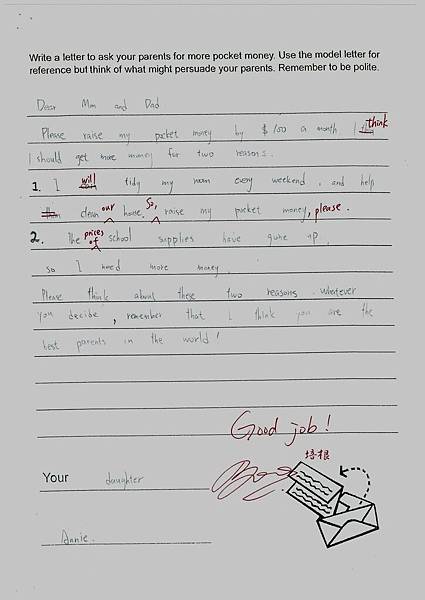 Write a letter to ask your parents for more pocket money. Use the model letter for
reference but think of what might persuade your parents. Remember to be polite.
Dear Mom and Dad
Please raise my pocket money by $100 a month I think
I should get more money for two reasons.
1. I will tidy my room every weekend, and help
clean our house. So, raise my pocket money, please.
2. The prices of school supplies have gone up,
so I need more money.
Please think about these two reasons. Whatever
you decide, remember that I think you are the
best parents in the world!
Good job!
培根
Your daughter
Annie.